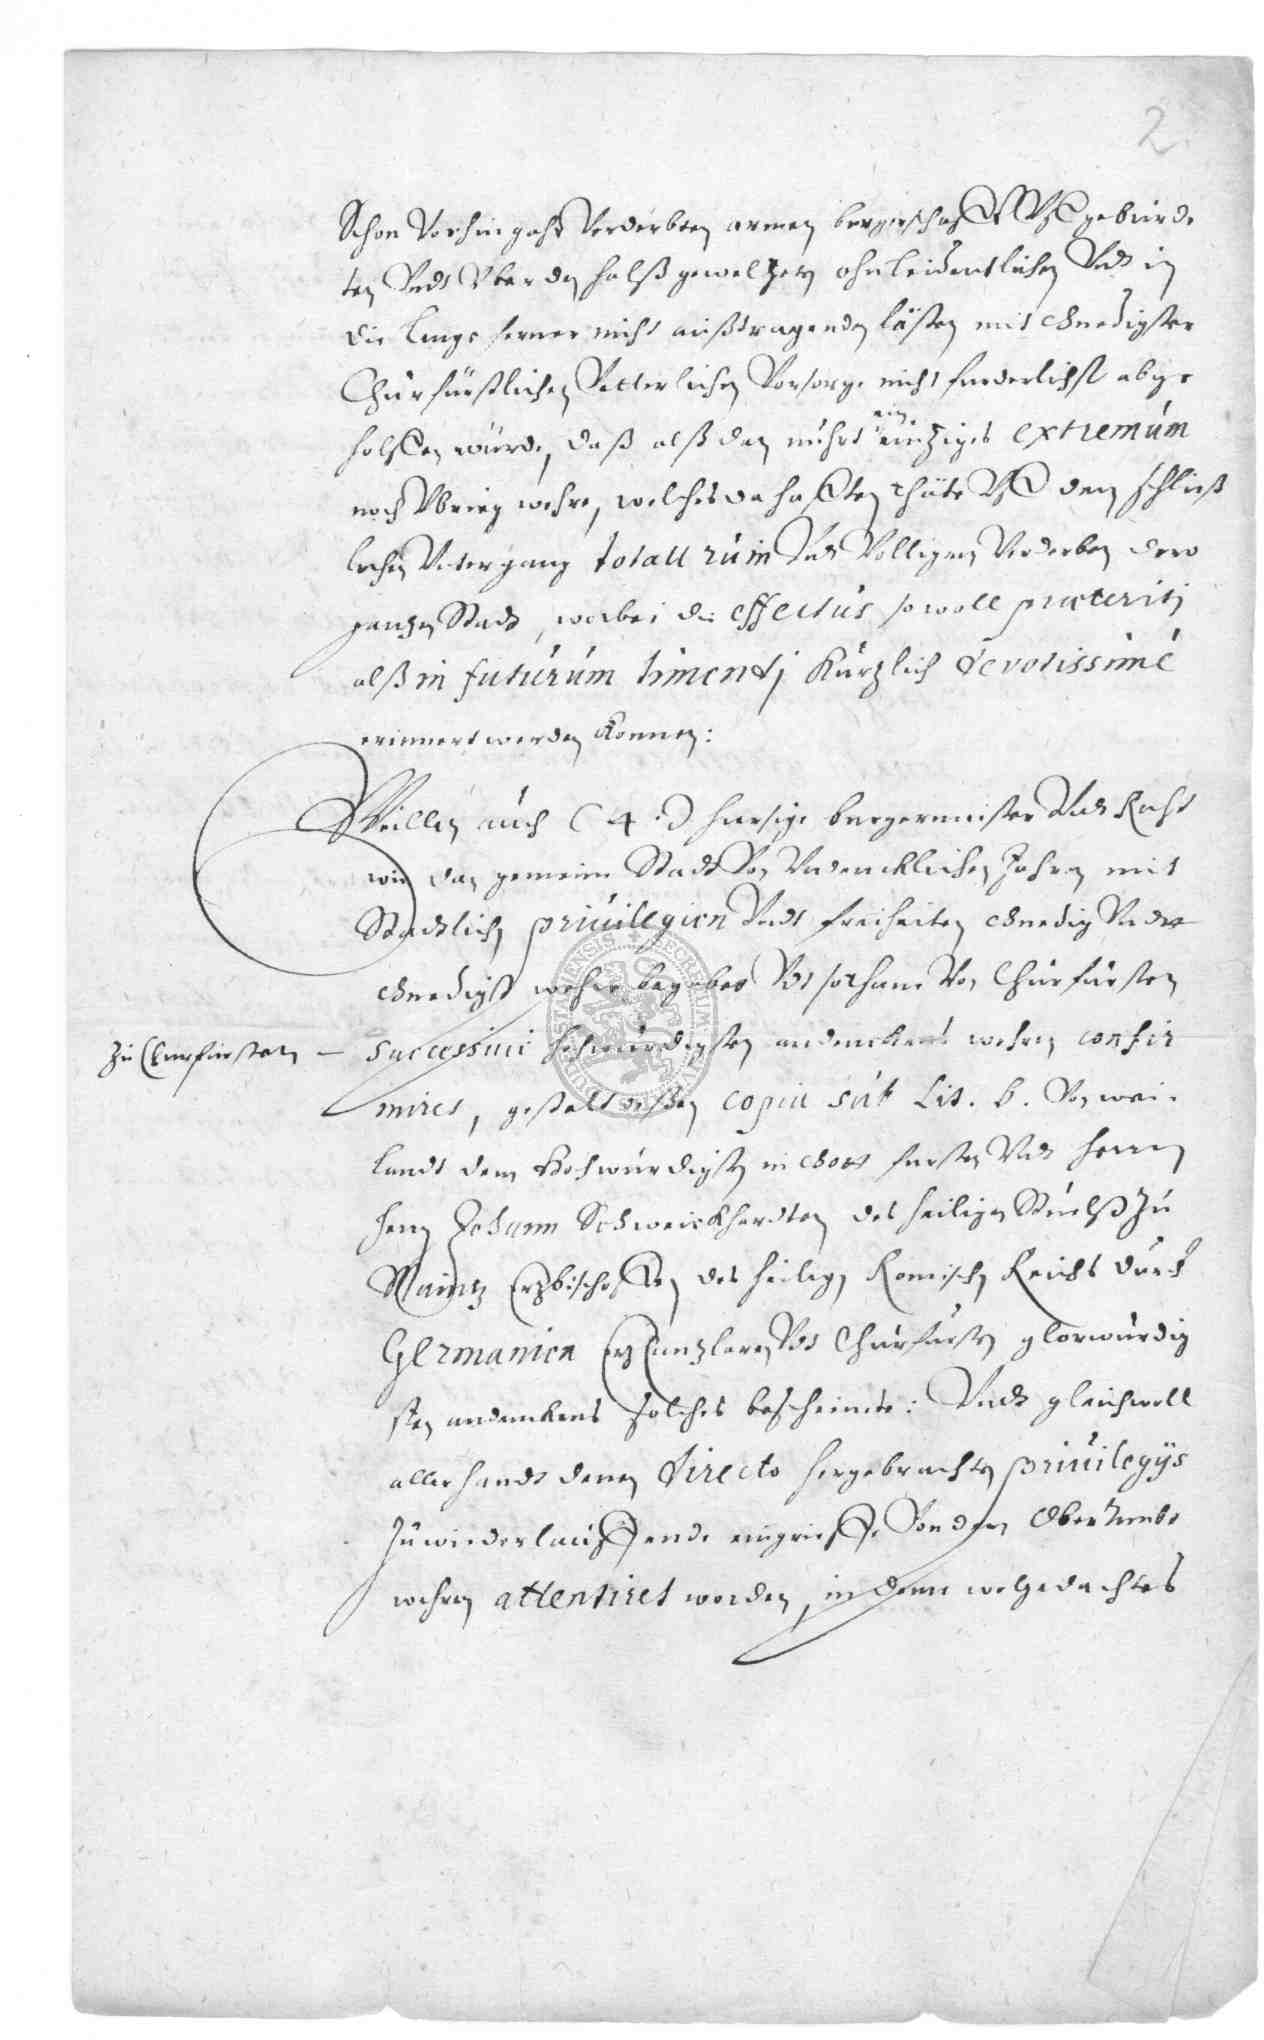 2
Schon Vorhin gahr Verderbten armen burgerschafft Vff gebürde
ten Vndt Vber den halß gewelzten ohnleidentlichen Vndt in
die lenge ferner nicht außtragenden lästen mit Gnedigster
Churfürstlichen Vatterlichen Vorsorge nicht furderlichst abge
holffen würde, daß alß dan nuhrt ein einziges extremúm
noch Vbrieg wehre, welches da hafften thäte Vff den schließ
lichen Vntergang totall rúin Vndt Volligen Verderben dero
gantzen Stadt, worbei die effectús so woll præteritj
alß in futúrúm timentj Kúrtzlich devotissimé
erinnert werden Konnen:
Weillen auch (4.) hiesige burgermeister Vndt Raht
wie dan gemeine Stadt Von Vndencklichen Jahren mit
Stadtlichen priúilegien Vndt freiheiten Gnedig Vndt
Gnedigst wehre begabet Vndt sothane Von Churfürsten
Zu Churfürsten – successiuè hochwürdigsten andenckens wehren confir
miret, gestalt dessen copia súb Lit. b. Von wei
landt dem Hochwürdigsten in Gott fursten Vndt herrn
herrn Johann Schweickhardten des heiligen Stuelß Zú
Maintz Ertzbischoffen des heiligen Romischen Reichs durch
Germanien Ertz Cantzleren Vndt Churfürsten glorwürdig
sten andenckens solches bescheinete: Vndt gleichwoll
allerhandt denen directo hergebrachten priúilegÿs
Zú wiederlauffende eingrieffe Von dem Oberambt
wehren attentiret worden, in deme wolgedachtes